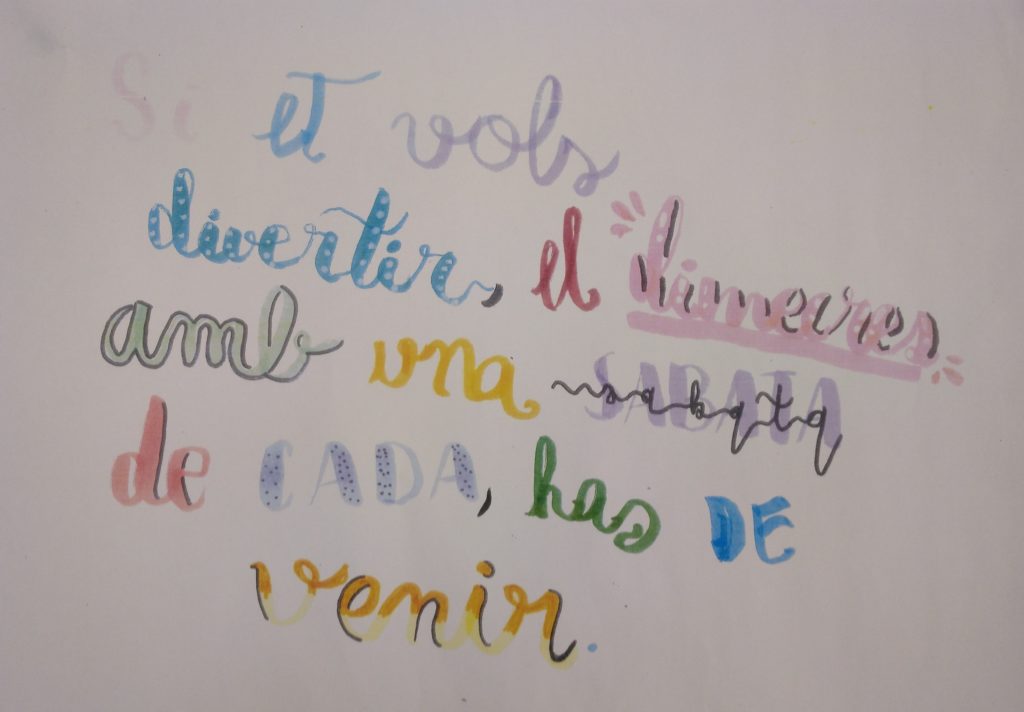 Si et vols
divertir, el dimecres
amb una SABATA sabata
de CADA, has DE
venir.